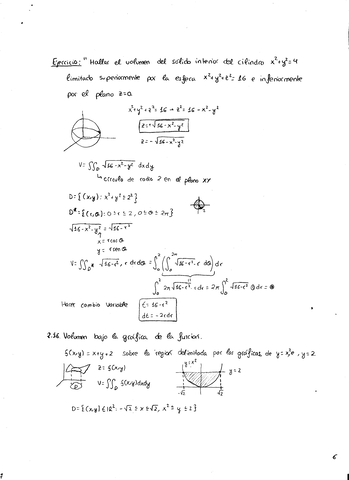 Ejercicio: "Hallar el volumen del sólido interior del cilindro x²+y²=4
limitado superiormente por la esfera x²+y²+z²=16 e inferiormente
por el plano z=0.
x²+y²+z²=16 → z²=16-x²-y²
z=+√16-x²-y²
z=-√16-x²-y²
V=∬_D √16-x²-y² dxdy
↳ círculo de radio 2 en el plano XY
D={(x,y): x²+y²≤2²}
D*={(r,θ): 0≤r≤2, 0≤θ≤2π}
√16-x²-y² = √16-r²
x=rcosθ
y=rsenθ
V=∬_D* √16-r² · r drdθ = ∫₀² (∫₀^2π √16-r² · r dθ) dr
∫₀² 2π √16-r² · r dr = 2π ∫₀² √16-r² r dr =
Hacer cambio variable
t=16-r²
dt=-2rdr
2.16 Volumen bajo la gráfica de la función.
f(x,y)=x+y+2 sobre la región delimitada por las gráficas de y=x², y=2
z=f(x,y)
V=∬_D f(x,y)dxdy
D
y=x²
y=2
-√2
√2
D={(x,y)∈ℝ²: -√2≤x≤√2, x²≤y≤2}
6